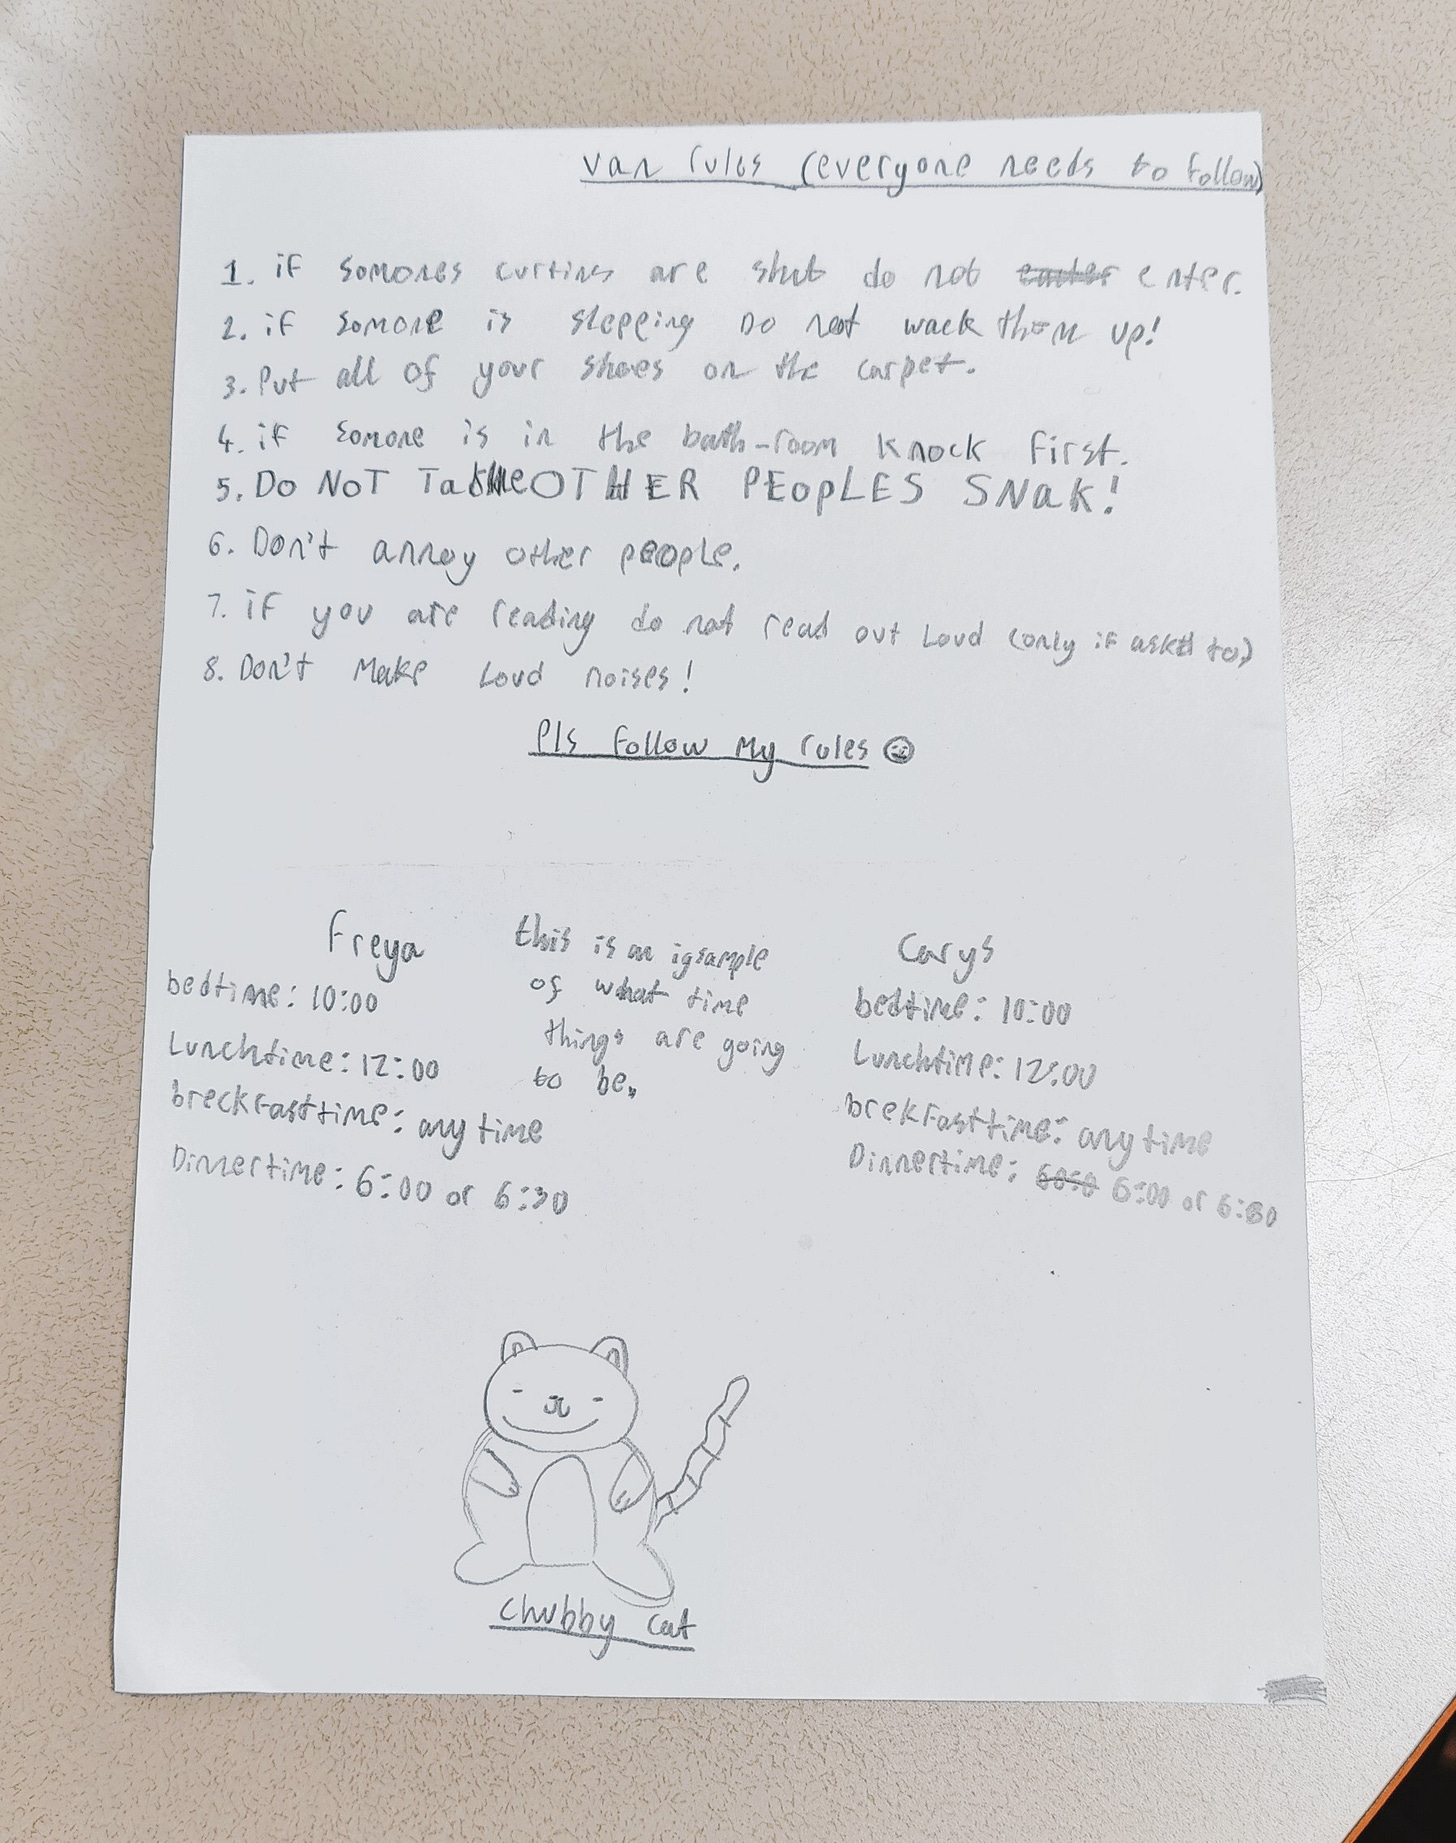 van rules (everyone needs to follow)
1. if somones curtins are shut do not enter.
2. if somone is slepping Do not wack them up!
3. Put all of your shoes on the carpet.
4. if somone is in the bath-room knock first.
5. Do NOT Take OTHER PEOpLES SNaK!
6. Don't annoy other people.
7. if you are reading do not read out Loud (only if askd to)
8. Don't Make Loud noises!
Pls follow my rules
Freya
bedtime: 10:00
Lunchtime: 12:00
breckfasttime: any time
Dinnertime: 6:00 or 6:30
this is an igsample
of what time
things are going
to be.
Carys
bedtime: 10:00
Lunchtime: 12:00
brekfasttime: any time
Dinnertime: 6:00 or 6:30
chubby cat